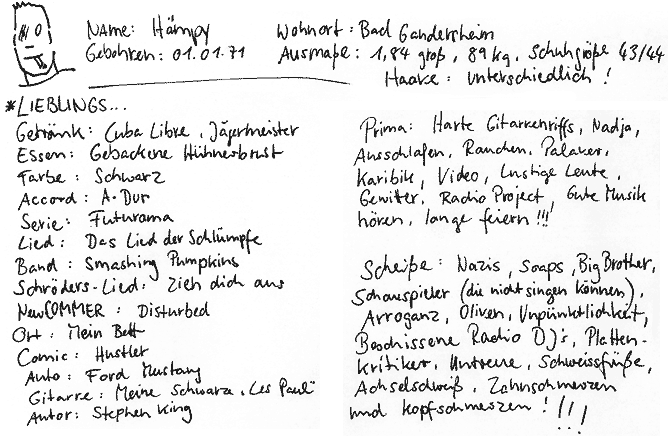 Name: Hämpy
Wohnort: Bad Gandersheim
Gebohren: 01.01.71
Ausmaße: 1,84 groß, 89 kg, Schuhgröße 43/44
Haare: unterschiedlich!
*LIEBLINGS...
Getränk: Cuba Libre, Jägermeister
Essen: Gebackene Hühnerbrust
Farbe: Schwarz
Accord: A-Dur
Serie: Futurama
Lied: Das Lied der Schlümpfe
Band: Smashing Pumpkins
Schröders-Lied: Zieh dich aus
NewCOMMER: Disturbed
Ort: Mein Bett
Comic: Hustler
Auto: Ford Mustang
Gitarre: Meine Schwarze „Les Paul"
Autor: Stephen King
Prima: Harte Gitarrenriffs, Nadja,
Ausschlafen, Rauchen, Palaver,
Karibik, Video, Lustige Leute,
Gewitter, Radio Project, Gute Musik
hören, lange feiern!!!
Scheiße: Nazis, Soaps, Big Brother,
Schauspieler (die nicht singen können),
Arroganz, Oliven, Unpünktlichkeit,
Radio DJ's, Platten-
kritiker, Untreue, Schweissfüße,
Achselschweiß, Zahnschmerzen
und Kopfschmerzen! !!!